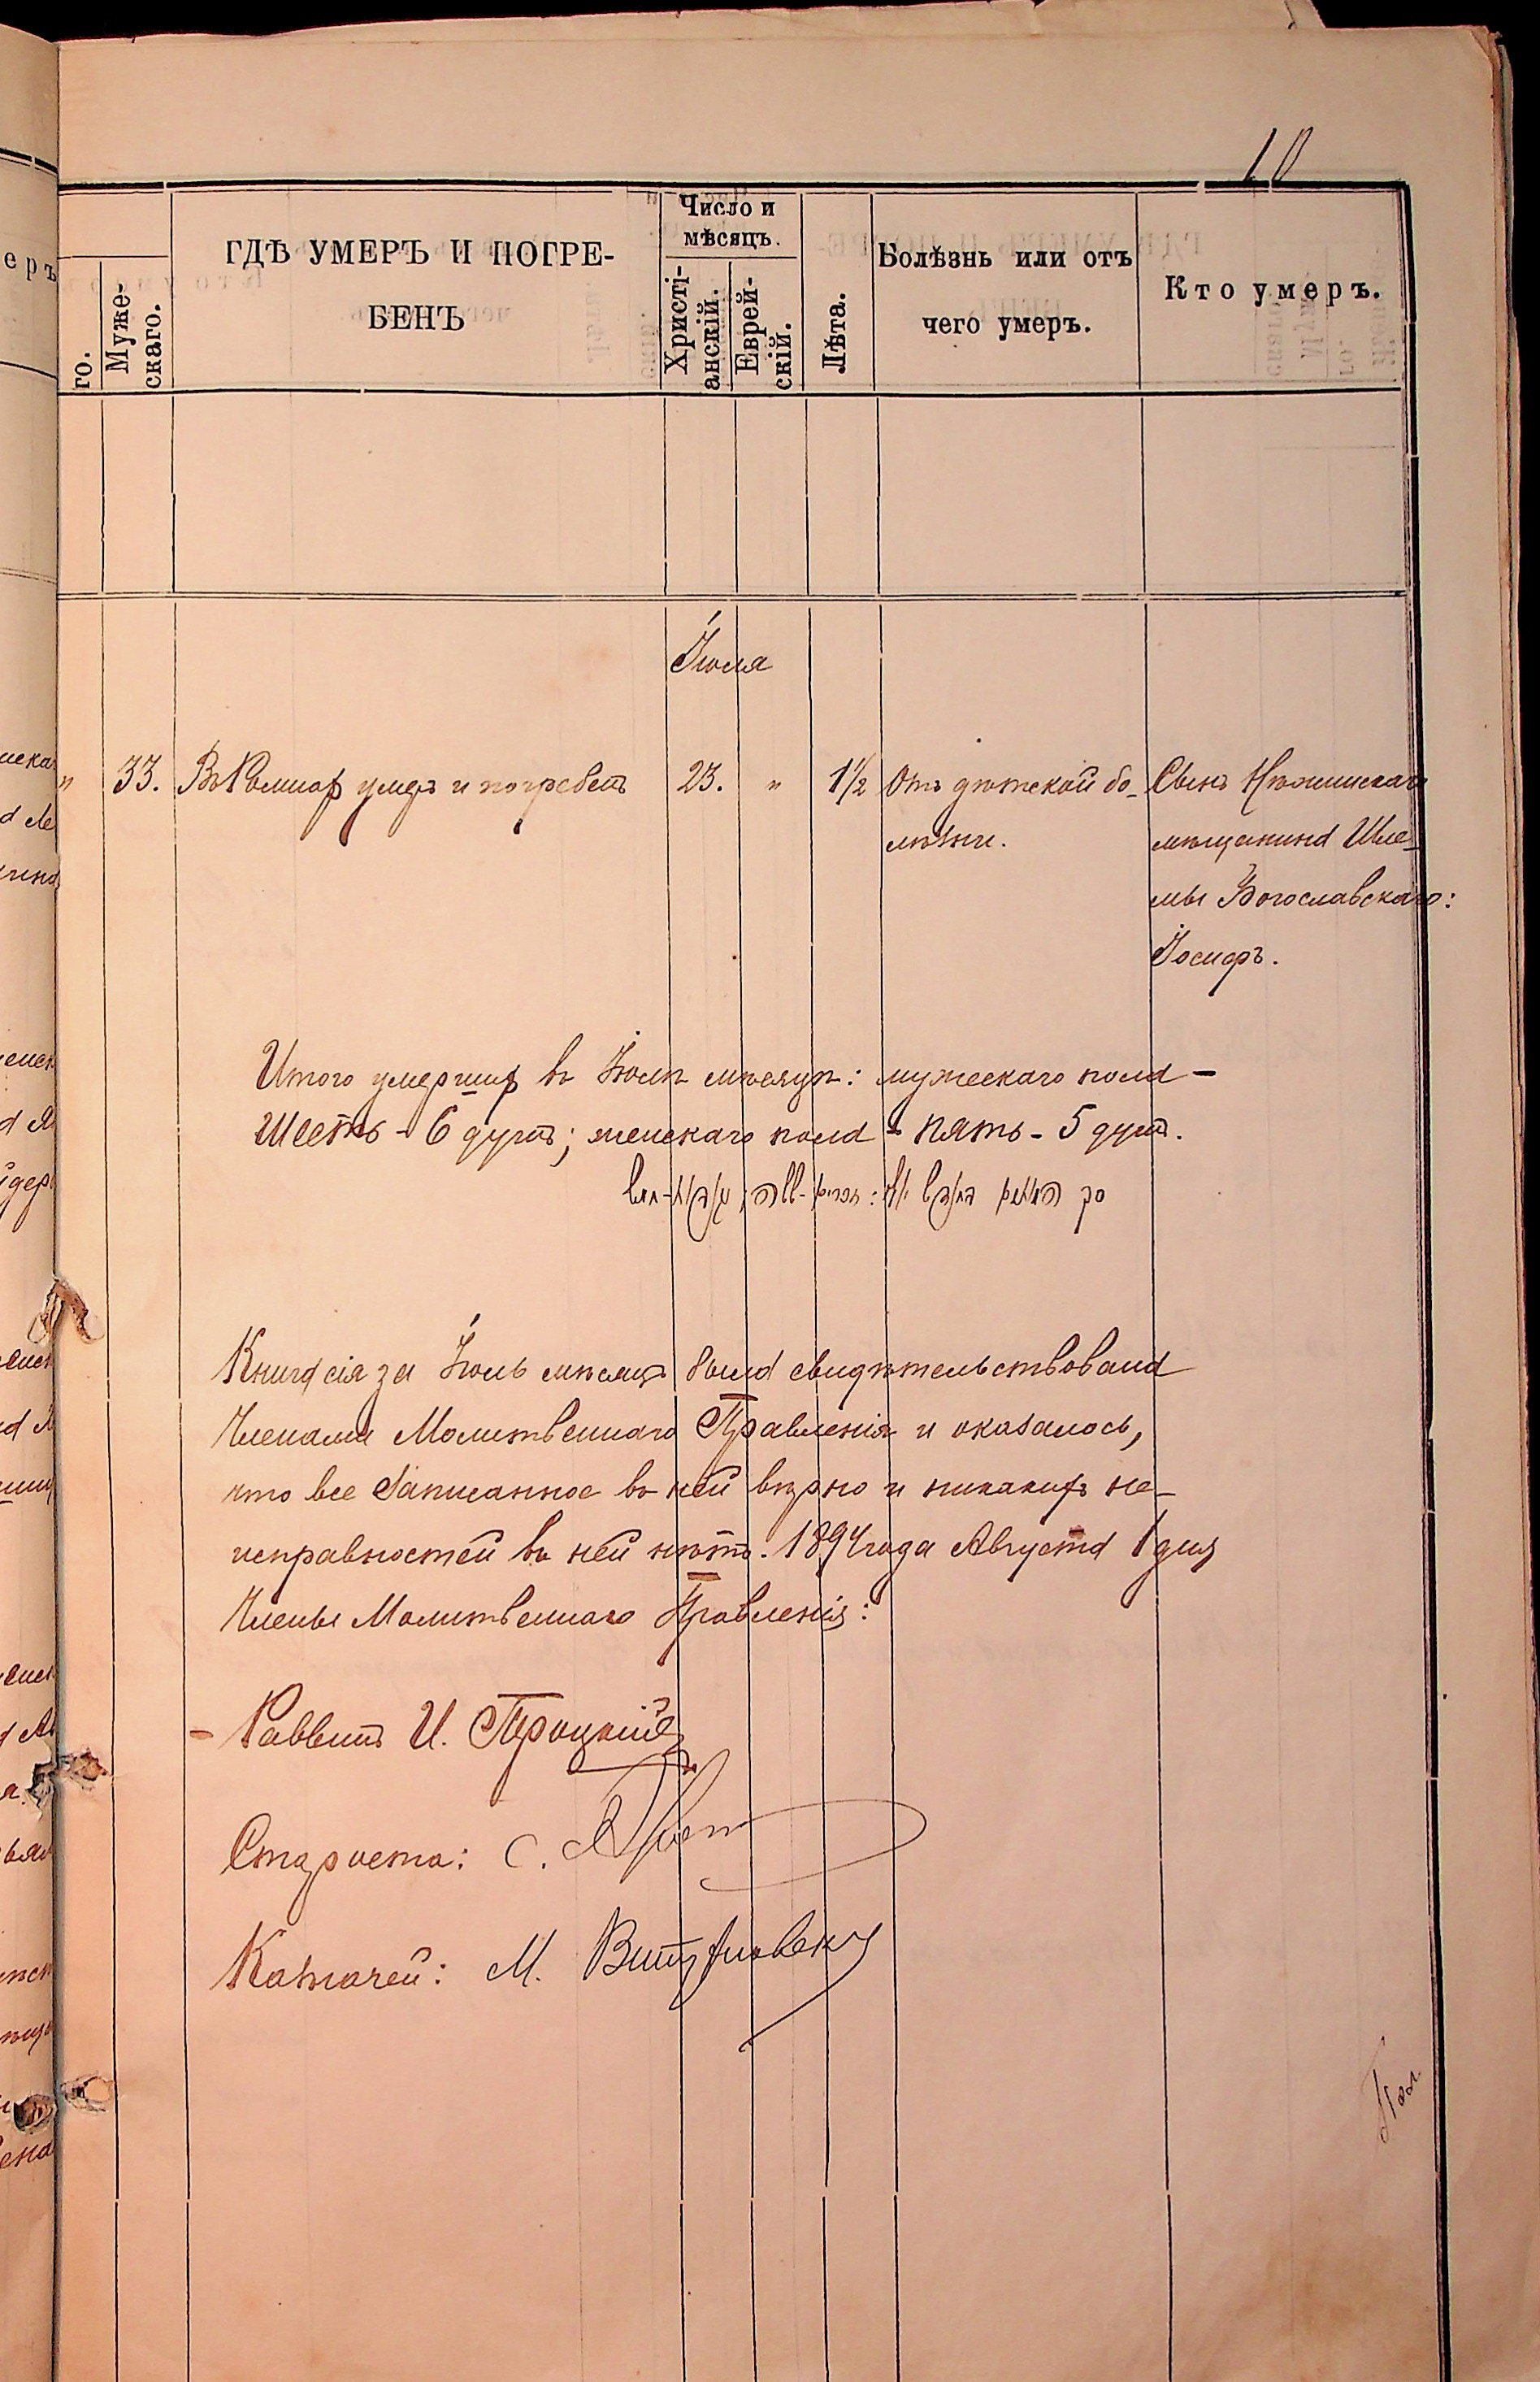 10
го.
Муже-
скаго.
ГДѢ УМЕРЪ И ПОГРЕ-
БЕНЪ
Число и
мѣсяцъ.
Христі-
анскій.
Еврей-
скій.
Лѣта.
Болѣзнь или отъ
чего умеръ.
Кто умеръ.
Іюля
" 33. Въ Ромнахъ умеръ и погребенъ 23. " 1½ Отъ дѣтской бо- Сынъ Нѣжинскаго
лѣзни. мѣщанина Шле-
мы Богославскаго:
Іосифъ.
Итого умершихъ въ Іюлѣ мѣсяцѣ: мужескаго пола -
шесть - 6 душъ; женскаго пола - пять - 5 душъ.
Книга сія за Іюль мѣсяцъ была свидѣтельствована
Членами Молитвеннаго Правленія и оказалось,
что все записанное въ ней вѣрно и никакихъ не-
исправностей въ ней нѣтъ. 1894 года Августа 1 дня
Члены Молитвеннаго Правленія:
- Раввинъ И. Троцкій
Староста: С.
Казначей: М.